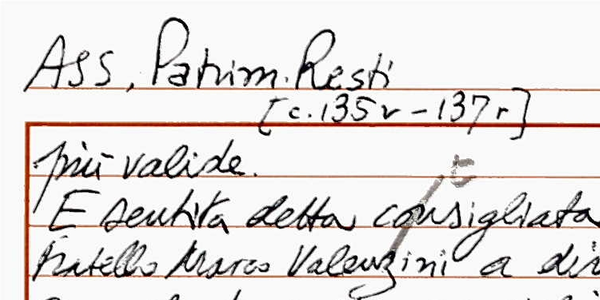 ASS, Patrim. Resti
[c. 135v - 137r]
più valide.
E sentita detta consigliata
fratello Marco Valenzini a dir